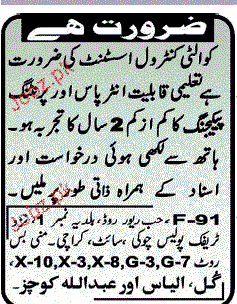 ضرورت ہے
کوالٹی کنٹرول اسسٹنٹ کی ضرورت
ہے تعلیمی قابلیت انٹر پاس اور پرنٹنگ
پیکیجنگ کا کم از کم 2 سال کا تجربہ ہو۔
ہاتھ سے لکھی ہوئی درخواست اور
اسناد کے ہمراہ ذاتی طور پر ملیں۔
F-91، حب ریور روڈ، بلدیہ نمبر 1، نزد
ٹریفک پولیس چوکی، سائٹ، کراچی۔ منی بس
روٹ X-10,X-3,X-8,G-3,G-7،
گل، الیاس اور عبداللہ کوچز۔